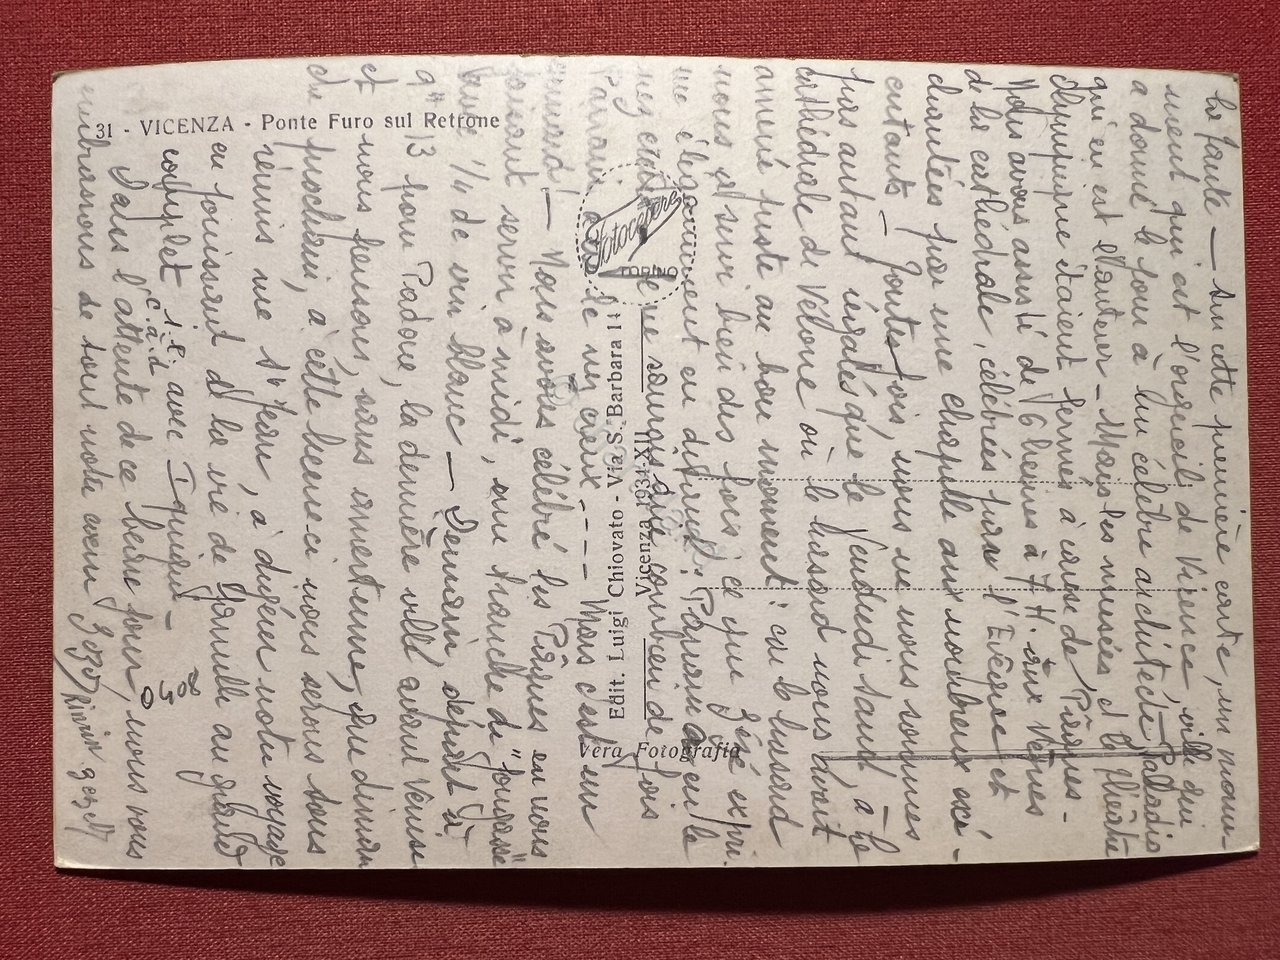 31 - VICENZA - Ponte Furo sul Retrone
Fotocelere
TORINO
Edit. Luigi Chiovato - Via S. Barbara 14
Vicenza 1934-XII
Vera Fotografia
la faute — Sur cette première carte, un monu-
ment qui est l'orgueil de Vicence, ville qui
a donné le jour à un célèbre architecte — Palladio
qui en est l'auteur — Mais les musées et le théâtre
Olympique étaient fermés à cause de Pâques -
Nous avons assisté de 6 heures à 7 H. aux Vêpres
de la cathédrale, célébrées par l'Evêque et
chantées par une chapelle aux nombreux exé-
cutants — Toutefois, nous ne nous sommes
pas autant régalés que le Vendredi saint, à la
cathédrale de Vérone où le hasard nous avait
amené juste au bon moment : car le hasard
nous a servi bien des fois, ce que Zézé expri-
me élégamment en disant : Pananan en le
nez
Panani de ny caux - - - - Mais c'est un
canard! — Nous avons célébré les Pâques en nous
faisant servir à midi, une tranche de "fougasse"
avec 1/4 de vin blanc — Demain, départ à
9 H 13 pour Padoue, la dernière ville avant Venise
et nous pensons, sans amertume, que dimanche
prochain, à cette heure-ci nous serons tous
réunis une fois, à digérer notre voyage
en jouissant de la vie de famille au grand
complet, i.e.i avec
c.à.d
Dans l'attente de ce beau jour, nous vous
embrassons de tout notre cœur Zézé